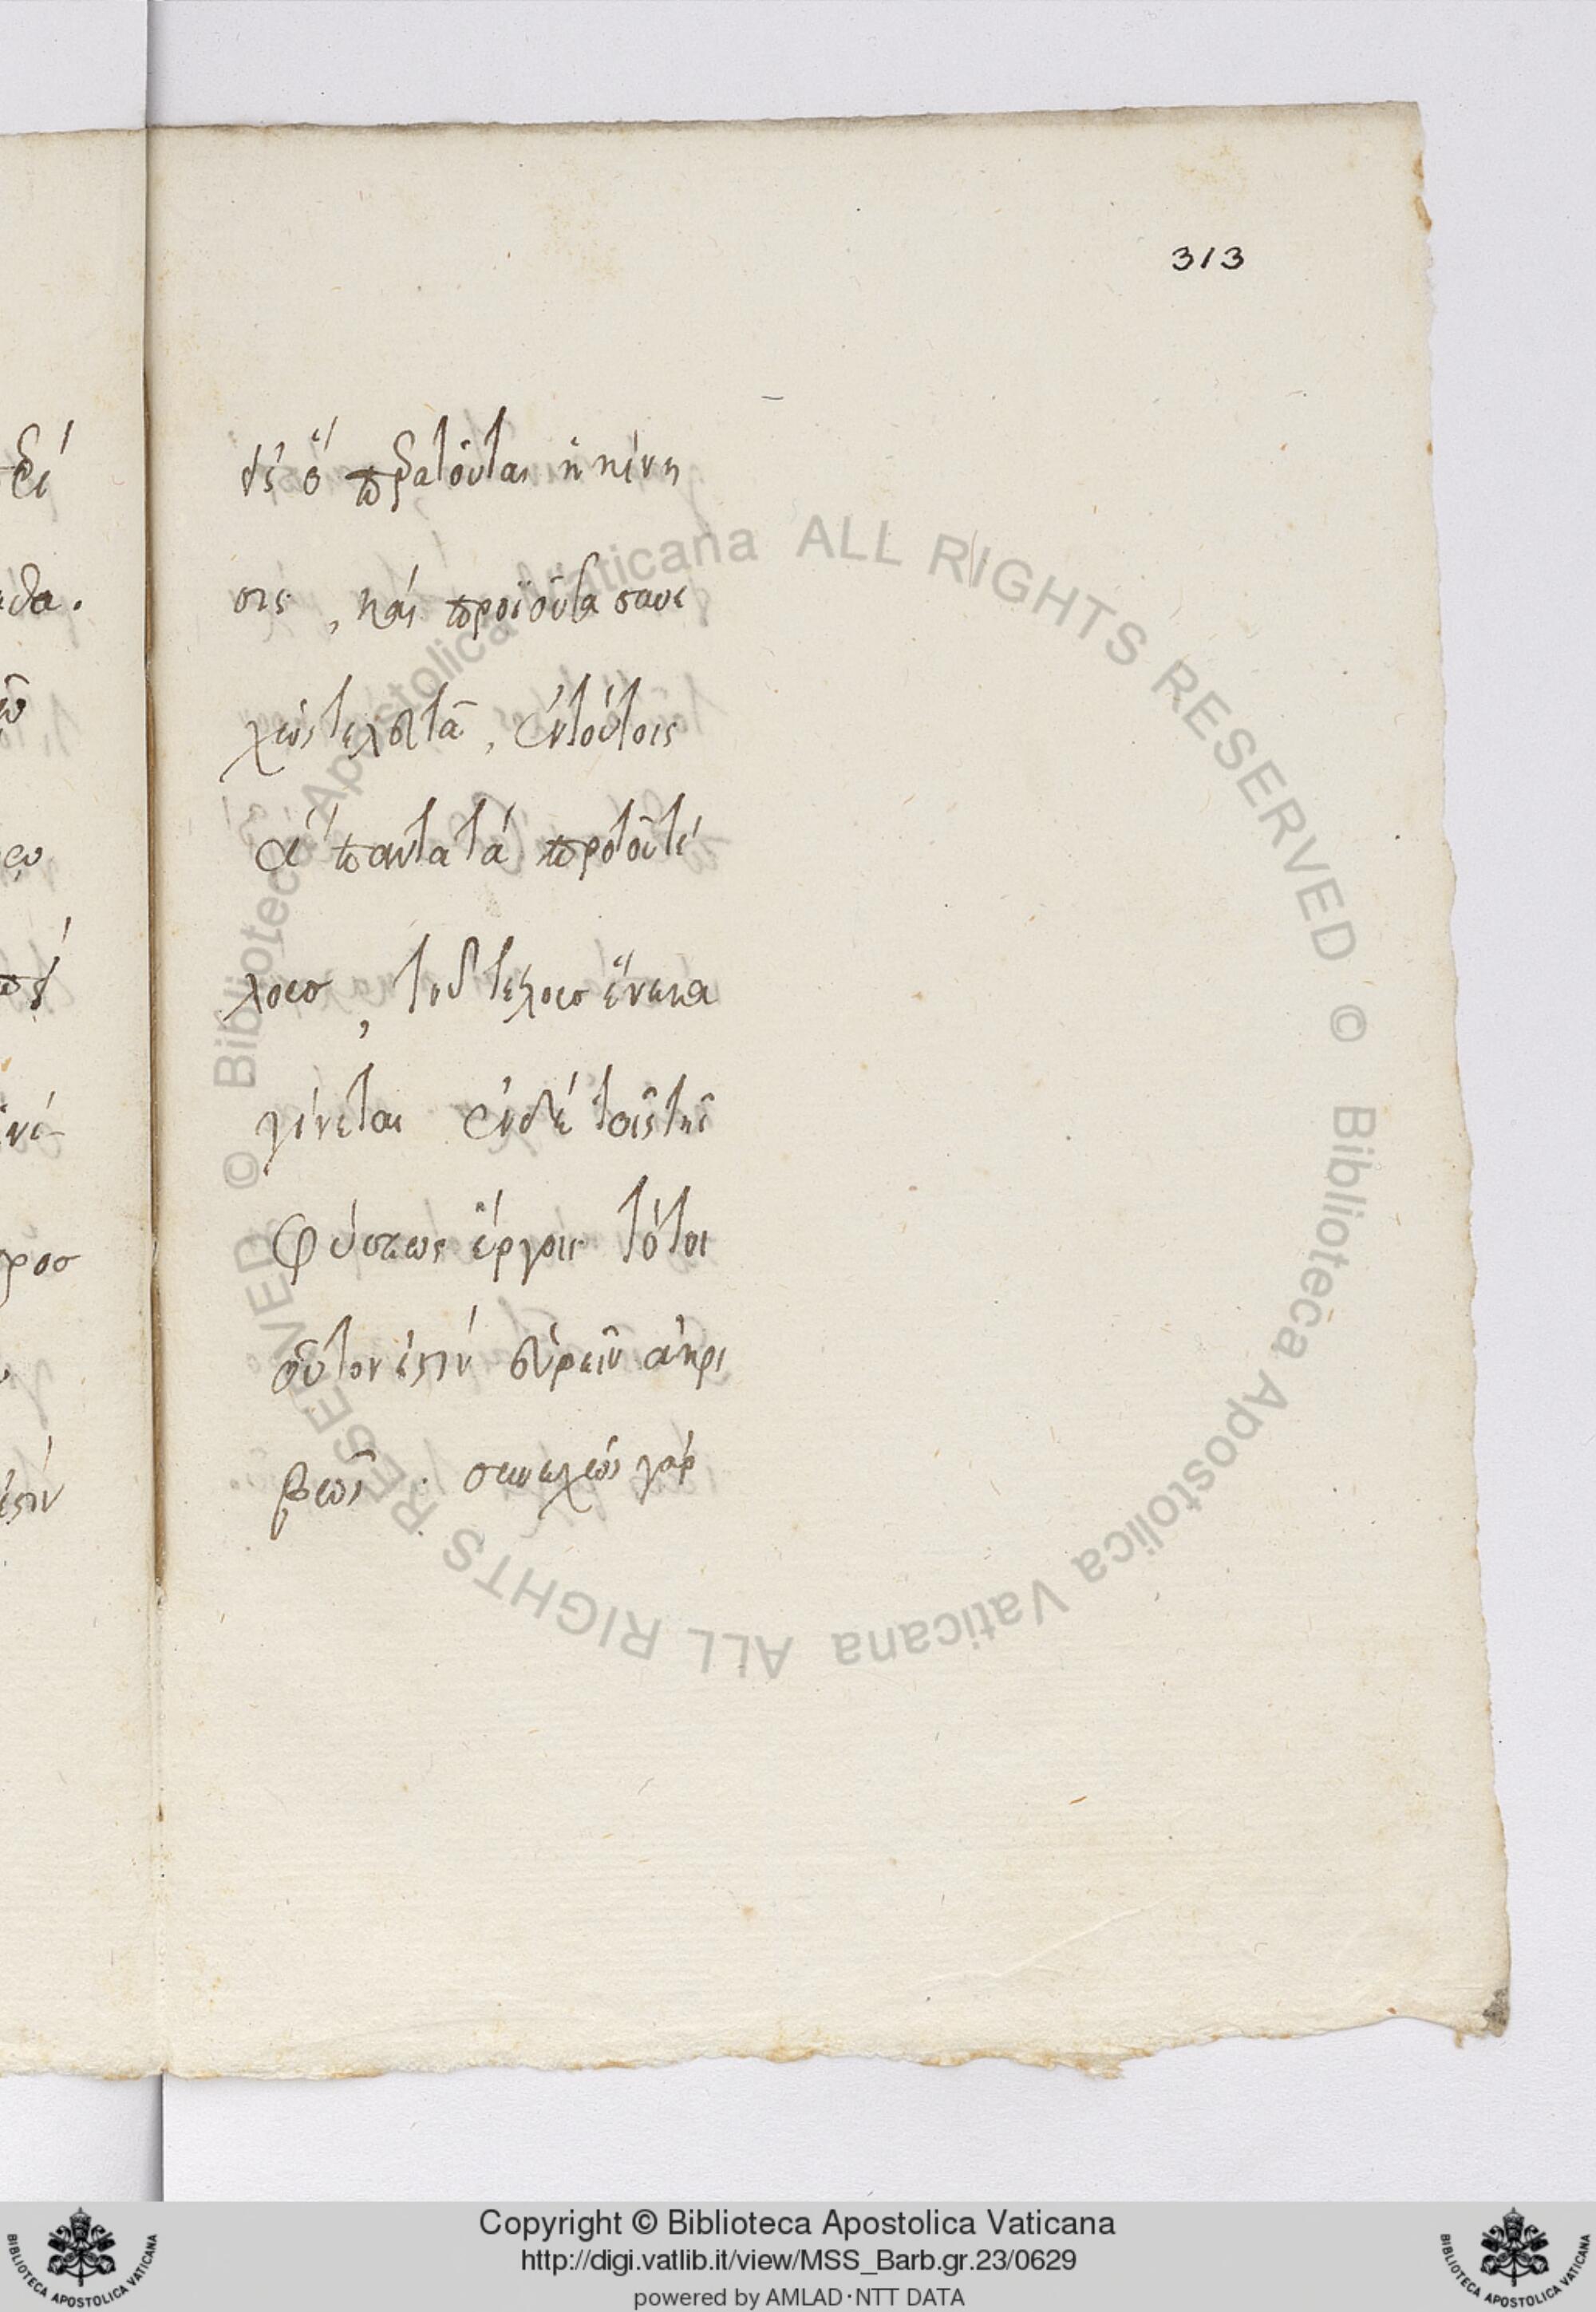 313
εἰς ὅ περατοῦται ἡ κίνη
σις, καὶ προϊοῦσα συνε
χῶς τελευτᾶ, ἐν τούτοις
ἅπαντα τὰ πρὸ τοῦ τέ
λους, τοῦ τέλους ἕνεκα
γίνεται ἐν δὲ τοῖς τῆς
φύσεως ἔργοις τὸ τοι
οῦτον ἐστὶν εὑρεῖν ἀκρι
βῶς. συνεχῶς γὰρ
ρος
ἐστὶν
© Biblioteca Apostolica Vaticana ALL RIGHTS RESERVED © Biblioteca Apostolica Vaticana ALL RIGHTS RESERVED
Copyright © Biblioteca Apostolica Vaticana
http://digi.vatlib.it/view/MSS_Barb.gr.23/0629
powered by AMLAD·NTT DATA
BIBLIOTECA APOSTOLICA VATICANA
BIBLIOTECA APOSTOLICA VATICANA